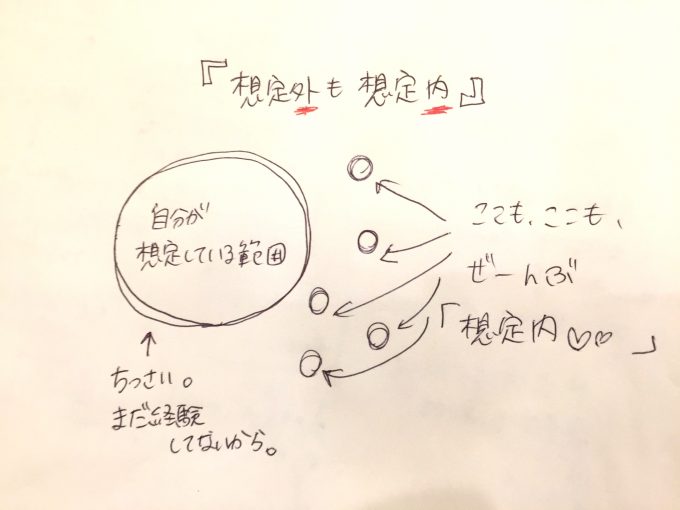 『想定外も想定内』
自分が
想定している範囲
ここも、ここも、
ぜーんぶ
「想定内♡♡」
ちっさい。
まだ経験
してないから。